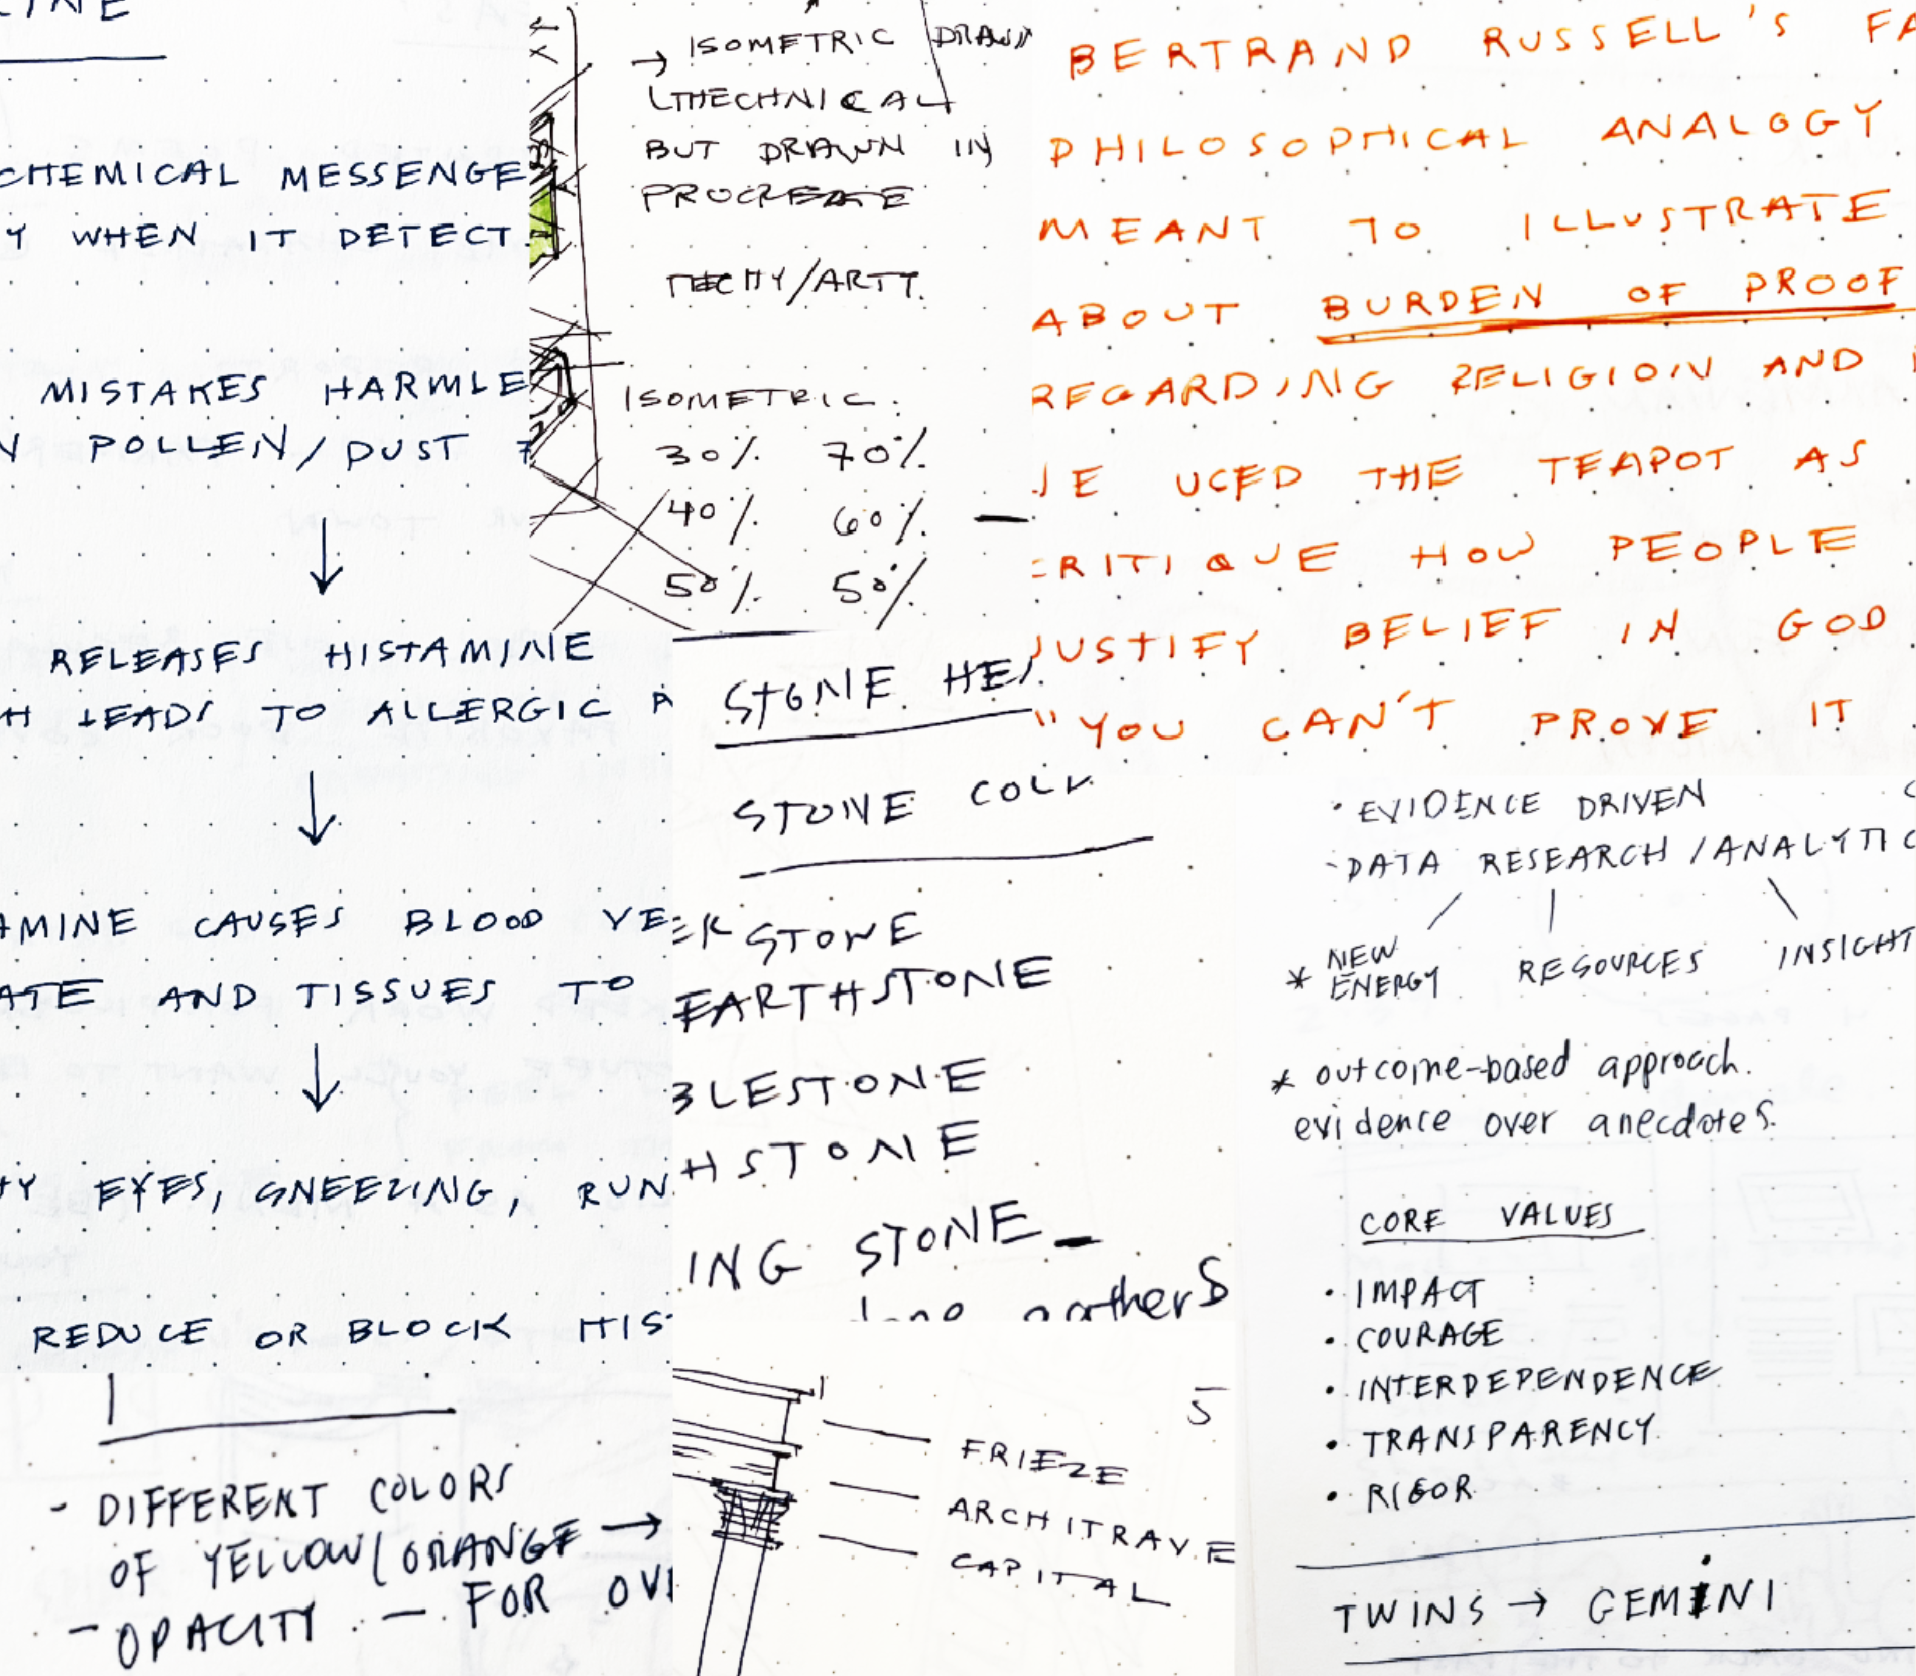 CHEMICAL MESSENGE
Y WHEN IT DETECT
MISTAKES HARMLE
N POLLEN/DUST
↓
RELEASES HISTAMINE
H LEADS TO ALLERGIC
↓
AMINE CAUSES BLOOD VE
ATE AND TISSUES TO
↓
HY EYES, SNEEZING, RUN
REDUCE OR BLOCK HIS
- DIFFERENT COLORS
OF YELLOW/ORANGE →
- OPACITY - FOR OV
→ ISOMETRIC DRAW
BUT DRAWN IN
PROCREATE
TECHY/ARTY.
ISOMETRIC.
30% 70%
40% 60% —
50% 50%
STONE HE
STONE COL
ER STONE
EARTHSTONE
BLESTONE
HSTONE
ING STONE
FRIEZE
ARCHITRAVE
CAPITAL
5
BERTRAND RUSSELL'S FA
PHILOSOPHICAL ANALOGY
MEANT TO ILLUSTRATE
ABOUT BURDEN OF PROOF
REGARDING RELIGION AND
HE UCED THE TEAPOT AS
CRITIQUE HOW PEOPLE
JUSTIFY BELIEF IN GOD
"YOU CAN'T PROVE IT
• EVIDENCE DRIVEN
- DATA RESEARCH / ANALYTIC
* NEW ENERGY RESOURCES INSIGHT
* outcome-based approach.
evidence over anecdotes.
CORE VALUES
• IMPACT
• COURAGE
• INTERDEPENDENCE
• TRANSPARENCY
• RIGOR
TWINS → GEMINI